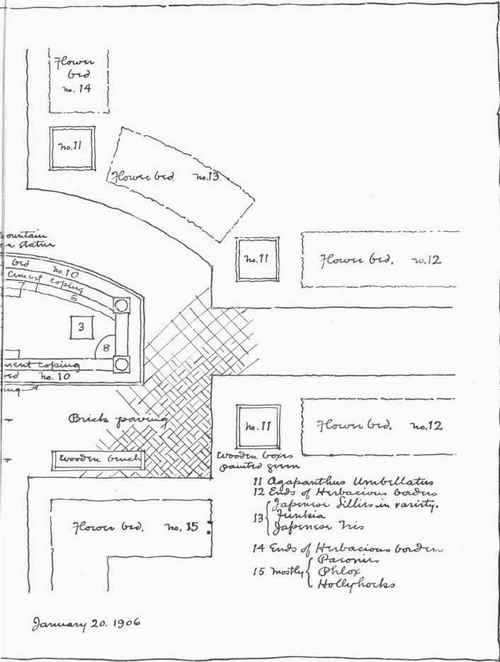 Flower
bed
no. 14
no. 11
Flower bed no. 13
no. 11
Flower bed. no. 12
ountain
statue
bed no. 10
cement coping
6
7
3
8
ment coping
no. 10
Brick paving
no. 11
Flower bed. no. 12
Wooden bench
Wooden boxes
painted green
11 Agapanthus Umbellatus
12 Ends of Herbacious borders
13 { Japenese Lillies in variety.
Funkia
Japenese Iris
Flower bed. no. 15
14 Ends of Herbacious border
15 mostly { Paeonies
Phlox
Hollyhocks
January 20. 1906